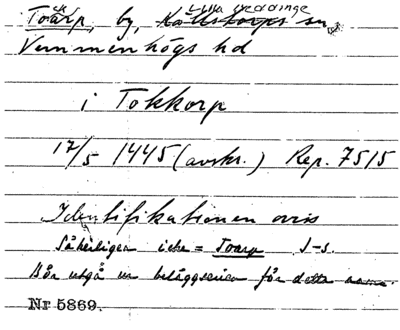 Lilla Beddinge
Toarp, by, Källstorps sn
Vemmenhögs hd
i Tokkorp
17/5 1445 (avskr.) Rep. 7515
Identifikationen oviss
Säkerligen icke = Toarp J-S.
Bör utgå ur beläggserien för detta namn.
Nr 5869.